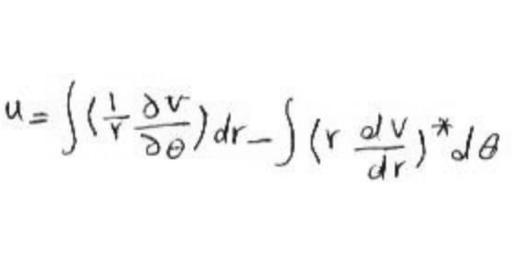 u = ∫(1/r ∂v/∂θ)dr − ∫(r dv/dr)*dθ